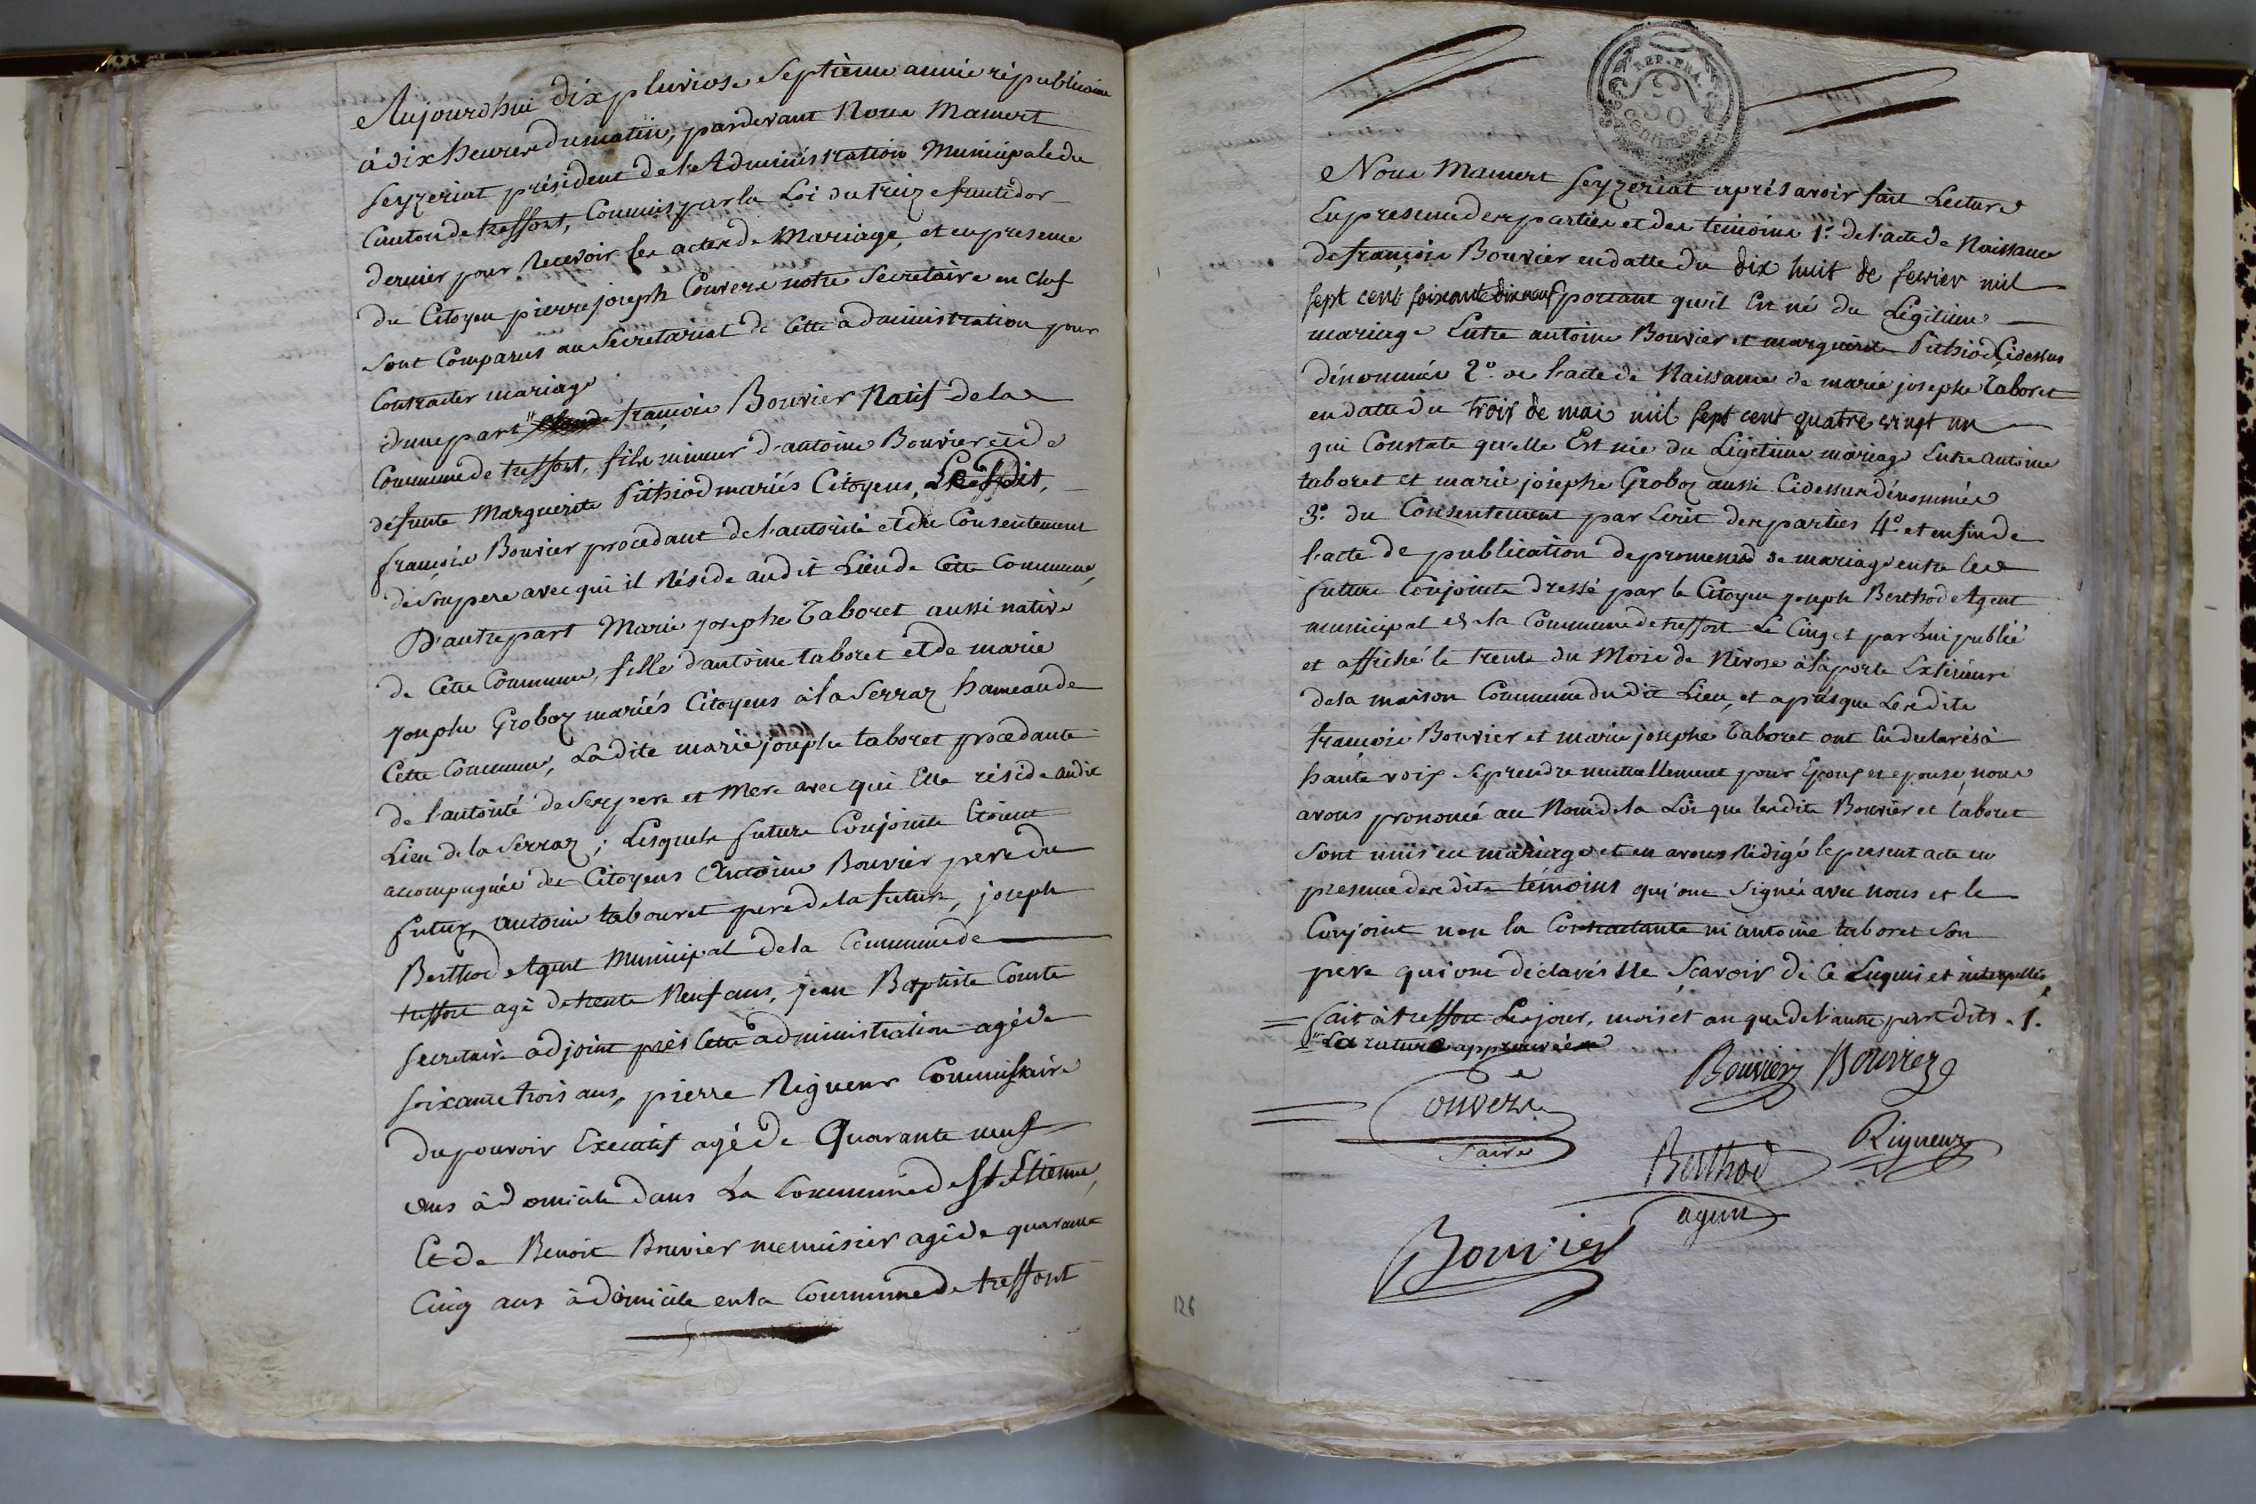 Aujourdhui dix pluviose Septieme année républicaine
à dix heures du matin, pardevant Nous Mamert
Seyzeriat président de l'Administration Municipale du
Canton de treffort, Commis par la Loi du treize fructidor
dernier pour Recevoir les actes de Mariage, et en presence
du Citoyen pierre joseph Convers notre Secretaire en Chef
Sont Comparus au Secretariat de Cette administration pour
Contracter mariage
d'une part françois Bouvier Natif de la
Commune de treffort, fils mineur d'antoine Bouvier et de
défunte Marguerite Pithiod mariés Citoyens, Le dit,
françois Bouvier procedant de l'autorité et du Consentement
de Son pere avec qui il Réside audit Lieu de Cette Commune,
D'autre part Marie josephe Taboret aussi native
de Cette Commune, fille d'antoine taboret et de marie
josephe Groboz mariés Citoyens à la Serraz hameau de
Cette Commune, Ladite marie josephe taboret procedante
de l'autorité de Ses pere et Mere avec qui Elle réside audit
Lieu de la Serraz; Lesquels futurs Conjoints Etoient
accompagnés des Citoyens Antoine Bouvier pere du
futur, antoine tabouret pere de la future, joseph
Berthod Agent Municipal de la Commune de
treffort agé de trente Neuf ans, jean Baptiste Conte
Secretaire adjoint près Cette administration agé de
soixante trois ans, pierre Rigueur Commissaire
du pouvoir Executif agé de Quarante neuf
ans à domicile dans La Commune de St Etienne,
Et de Benoit Bouvier menuisier agé de quarante
Cinq ans à domicile en la Commune de treffort
REP. FRA.
50
centimes
Nous Mamert Seyzeriat après avoir fait Lecture
En presence des parties et des temoins 1.° de l'acte de Naissance
de françois Bouvier en datte du dix huit de fevrier mil
sept cent soixante dix neuf portant qu'il Est né du Légitime
mariage Entre antoine Bouvier et marguerite Pithiod Cidessus
dénommés 2.° de l'acte de Naissance de marie josephe Taboret
en datte du trois de mai mil sept cent quatre vingt un
qui Constate qu'elle Est née du Légitime mariage Entre antoine
taboret et marie josephe Groboz aussi Cidessus dénommés
3.° du Consentement par Ecrit des parties 4.° et enfin de
l'acte de publication de promesses de mariage entre les
futurs Conjoints dressé par le Citoyen joseph Berthod Agent
municipal de la Commune de treffort Le Cinq et par Lui publié
et affiché le trente du Mois de Nivose à la porte Extérieure
de la maison Commune dudit Lieu, et après que Lesdits
françois Bouvier et marie josephe Taboret ont Eu declarés à
haute voix Se prendre mutuellement pour Epoux et epouse, nous
avons prononcé au Nom de la Loi que lesdits Bouvier et taboret
Sont unis en mariage et en avons Rédigé le present acte en
presence desdits témoins qui ont Signés avec nous et le
Conjoint non la Contractante ni antoine taboret Son
pere qui ont déclarés Ne Sçavoir de Ce Enquis et interpellés,
fait à treffort Les jour, mois et an que de l'autre part dits
La rature approuvée
Bouvier Bouvier
Convers
Rigueur
Berthod
agent
Bouvier
126